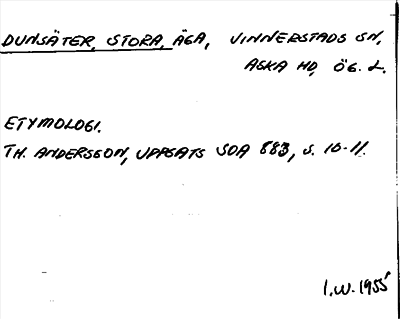 DUNSÄTER, STORA, ÄGA, VINNERSTADS SN,
ASKA HD, ÖG. L.
ETYMOLOGI.
TH. ANDERSSON, UPPSATS SOA 883, S. 10-11.
I.W. 1955